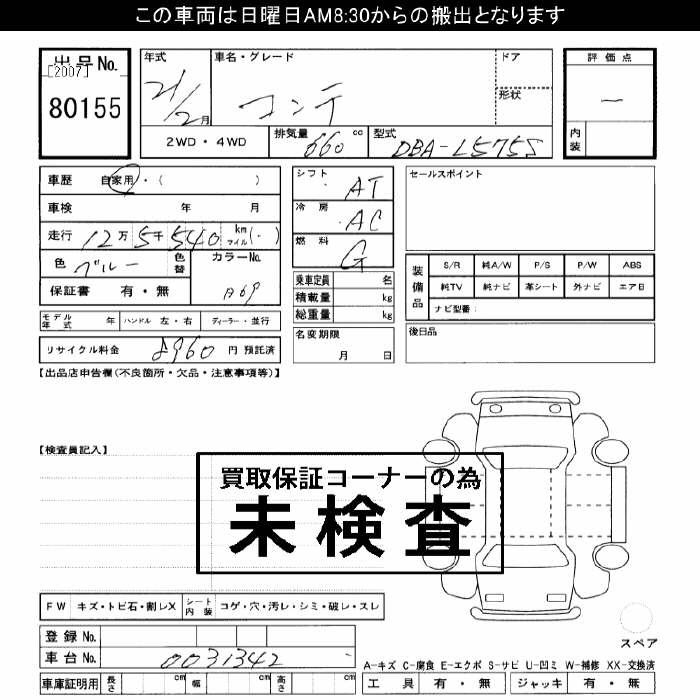 この車両は日曜日AM8:30からの搬出となります
出品No.
[2007]
80155
年式
21/2月
車名・グレード
コンテ
ドア
形状
2WD・4WD
排気量 660 cc
型式 DBA-L575S
評価点
ー
内装
車歴 自家用・( )
車検 年 月
走行 12万5千540 km マイル(・)
色 ブルー 色替
カラーNo. B69
保証書 有・無
モデル年式 年 ハンドル 左・右 ディーラー・並行
リサイクル料金 8960 円 預託済
シフト AT
冷房 AC
燃料 G
乗車定員 名
積載量 kg
総重量 kg
名変期限
月 日
セールスポイント
装備品
S/R 純A/W P/S P/W ABS
純TV 純ナビ 革シート 外ナビ エアB
ナビ型番:
後日品
【出品店申告欄(不良箇所・欠品・注意事項等)】
【検査員記入】
買取保証コーナーの為
未検査
FW キズ・トビ石・割レX シート内装 コゲ・穴・汚レ・シミ・破レ・スレ
登録No.
車台No. 0031342
車庫証明用 長さ cm 幅 cm 高さ cm
スペア
A-キズ C-腐食 E-エクボ S-サビ U-凹ミ W-補修 XX-交換済
工具 有・無 ジャッキ 有・無